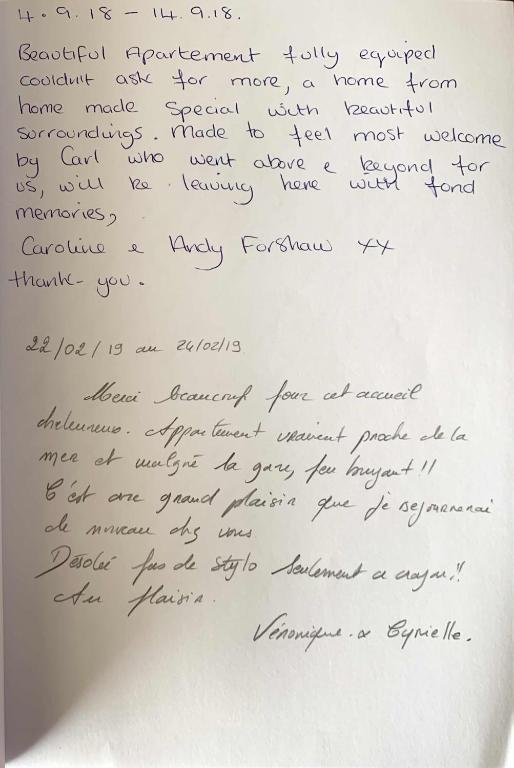 4.9.18 - 14.9.18.
Beautiful Apartement fully equiped
couldnt ask for more, a home from
home made special with beautiful
surroundings. Made to feel most welcome
by Carl who went above & beyond for
us, will be leaving here with fond
memories,
Caroline & Andy Forshaw xx
thank-you.
22/02/19 au 24/02/19
Merci beaucoup pour cet accueil
chaleureux. Appartement vraiment proche de la
mer et malgré la gare, peu bruyant !!
C'est avec grand plaisir que je séjournerai
de nouveau chez vous
Désolé pas de stylo seulement ce crayon !!
Au plaisir.
Véronique. & Cyrielle.